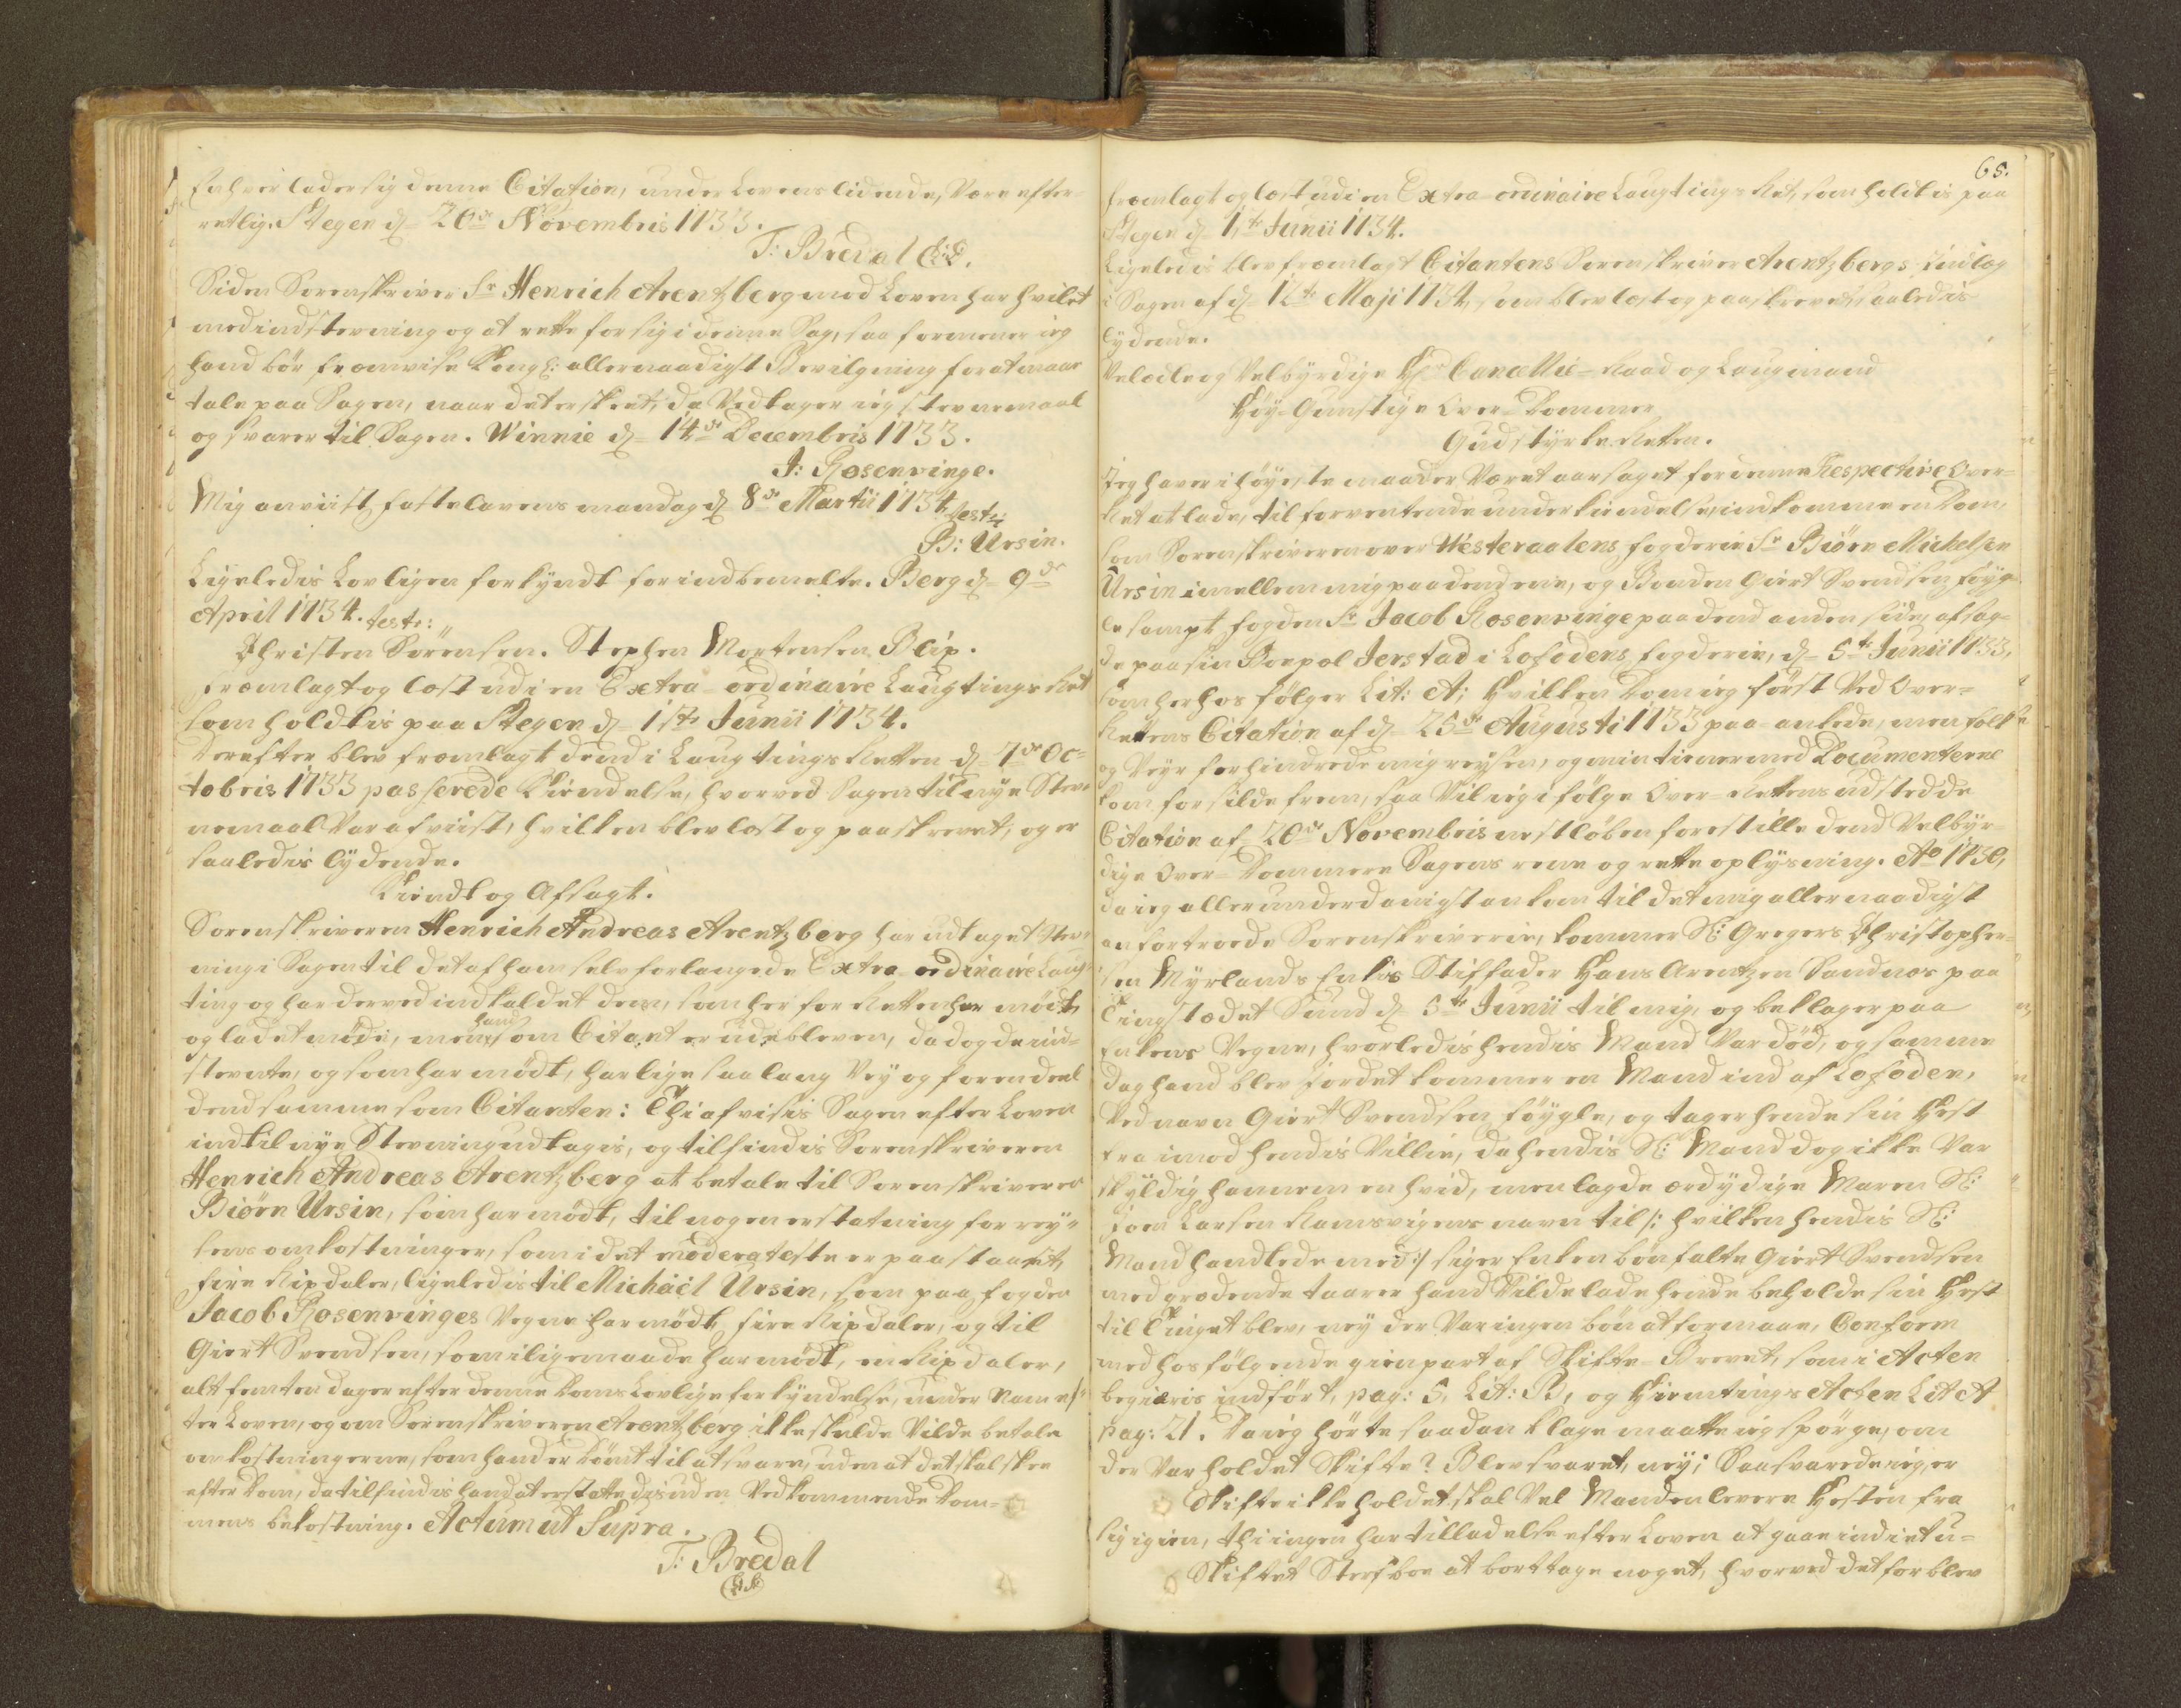 Enhver lader sig denne Citation, under Lovens lidende, Være efter-
retlig. Stegen d. 20de Novembris 1733.
T: Bredal
Siden Sorenskriver Sr Henrich Arentzberg mod Loven har hvilet
med indstevning og at rette for sig i denne Sag, saa formener ieg
hand bör fremvise Kongl: allernaadigst Bevilgning for at maae
tale paa Sagen, naar det er skeet, da Vedtager ieg stevnemaal
og svarer til Sagen. Winnie d. 14de Decembris 1733.
J: Rosenvinge.
Mig anviist, fastelavens mandag d. 8de Martii 1734 test:
B: Ursin.
Ligeledis Lovligen forkyndt for indbemelte. Berg d. 9de
April 1734. test:
Christen Sörensen. Stephen Mortensen Blix.
fremlagt og læst udi en Extra-ordinaire Laugtings Ret
som holdtis paa Stegen d. 1ste Junii 1734.
Derefter blev fremlagt dend i Laugtings Retten d. 7de Oc-
tobris 1733 passerede Kiendelse, hvorved Sagen til nye Stev-
nemaal Var afviist, hvilken blev læst og paaskrevet, og er
saaledis lydende.
Kiendt og Afsagt.
Sorenskriveren Henrich Andreas Arentzberg har udtaget Stev-
ning i Sagen til det af ham selv forlangede Extra-ordinaire Laug-
ting og har derved indkaldet dem, som her for Retten har mödt,
og ladet möde, men hand som Citant er udebleven, da dog de ind-
stevnte, og som har mödt, har lige saa lang Vey og forendeel
dend samme som Citanten: Thi afvises Sagen efter Loven
indtil nye Stevning udtages, og tilfindis Sorenskriveren
Henrich Andreas Arentzberg at betale til Sorenskriveren
Biörn Ursin, som har mödt, til nogen erstatning for rey-
sens omkostninger, som i det moderateste er paastaaet,
fire Rixdaler, ligeledis til Michaël Ursin, som paa fogden
Jacob Rosenvinges Vegne har mödt, fire Rixdaler, og til
Giert Svendsen, som iligemaade har mödt, en Rixdaler,
alt femten dager efter denne Doms Lovlige forkyndelse, under Nam ef-
ter Loven, og om Sorenskriveren Arentzberg ikke skulde Vilde betale
omkostningerne, som hand er dömt til at svare, uden at det skal skee
efter Dom, da tilfindis hand at erstatte desuden Vedkommende Dom-
mens bekostning. Actum ut Supra.
T: Bredal

65.
fremlagt og læst udi en Extra-ordinaire Laugtings Ret, som holdtis paa
Stegen d. 1ste Junii 1734.
Ligeledis blev fremlagt Citantens Sorenskriver Arentzbergs Indlæg
i Sagen af d. 12te Maji 1734, som blev læst og paaskrevet, saaledis
lydende.
Velædle og Velbyrdige Hr Cancellie-Raad og Laugmand
Höy-Gunstige Over-Dommer
Gud styrke Retten.
Jeg haver i höyeste maader Været aarsaget for denne Respective Over-
Ret at lade, til forventende underkiendelse, indkomme en Dom,
som Sorenskriveren over Westeraalens fogderie Sr Biörn Michelsen
Ursin imellem mig paa dend ene, og Bonden Giert Svendsen föyg-
le sampt fogden Sr Jacob Rosenvinge paa dend anden side, afsag-
de paa sin Boepæl Jerstad i Lofodens fogderie, d. 5te Junii 1733,
som herhos fölger Lit: A; Hvilken Dom ieg först Ved Over-
Rettens Citation af d. 25de Augusti 1733 paa-ankede, men folk
og Veyr forhindrede mig reysen, og min tiener med Documenterne
kom for silde frem, saa Vil ieg i fölge Over-Rettens udstedde
Citation af 20de Novembris nestlöben forestille dend Velbyr-
dige Over-Dommere Sagens rene og rette oplysning. Ao 1730,
da ieg allerunderdanigst ankom til det mig allernaadigst
anfortroede Sorenskriverie, kommer Sl: Gregers Christopher-
sen Myrlands Enkes Stiffader Hans Arentzen Sandnæs paa
Tingstædet Sund d. 5te Junii til mig, og beklager paa
Enkens Vegne, hvorledis hendis Mand Var död, og samme
dag hand blev jordet kommer en Mand ind af Lofoden,
Ved navn Giert Svendsen föygle, og tager hende sin Hest
fra imod hendis Villie, da hendis Sl: Mand dog ikke Var
skyldig hannem en hvid, men lagde ærdydige Maren Sl:
Joen Larsen Ramsvigens navn til /: hvilken hendis Sl:
Mand handlede med :/ siger Enken bönfalte Giert Svendsen
med grædende taarer hand Vilde lade hende beholde sin Hest
til Tinget blev, ney der Var ingen bön at formaae, Conform
med hosfölgende gienpart af Skifte-Brevet, som i Acten
begiæris indfört, pag: 5, Lit: B, og Hiemtings Acten Lit A
pag: 21. Da ieg hörte saadan klage maatte ieg spörge, om
der Var holdet Skifte? Blev svaret, ney; Saa svarede ieg, er
Skifte ikke holdet, skal Vel Manden levere Hesten fra
sig igien, thi ingen har tilladelse efter Loven at gaae ind i et u-
Skiftet Sterfboe at borttage noget, hvorved det forblev